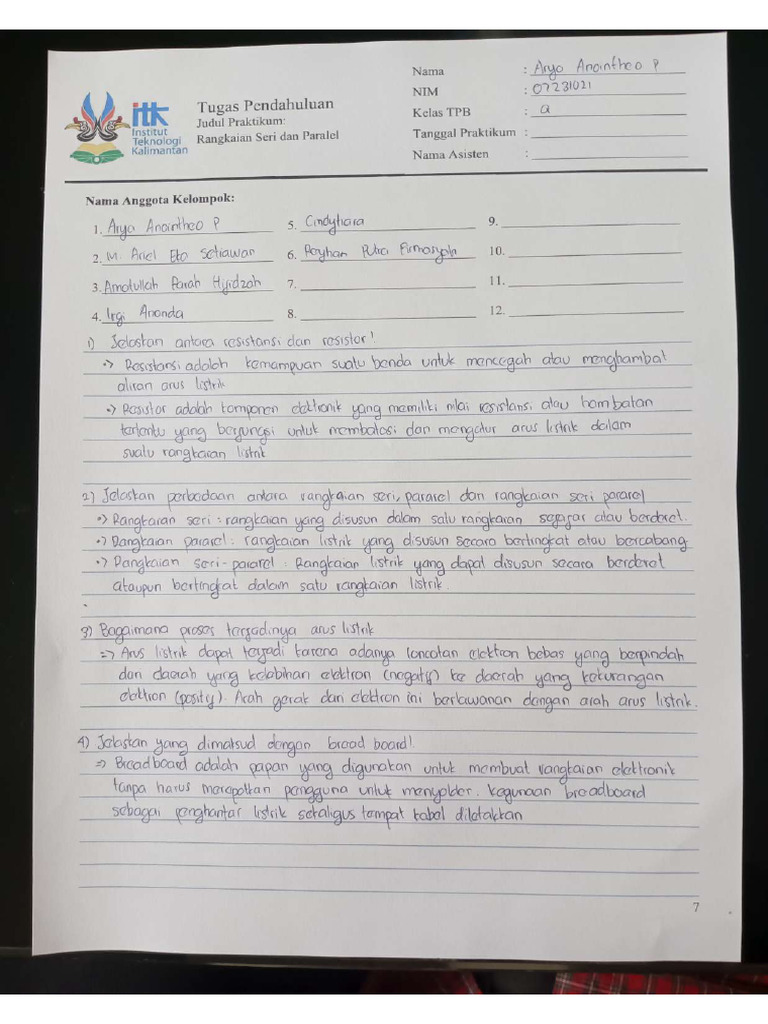 itk
Institut
Teknologi
Kalimantan
Tugas Pendahuluan
Judul Praktikum:
Rangkaian Seri dan Paralel
Nama : Aryo Anointheo P
NIM : 07231021
Kelas TPB : a
Tanggal Praktikum :
Nama Asisten :
Nama Anggota Kelompok:
1. Aryo Anointheo P
2. M. Ariel Eko Setiawan
3. Amatullah Farah Hyidzah
4. Irgi Ananda
5. Cindyhara
6. Reyhan Putra Firmasyah
7.
8.
9.
10.
11.
12.
1) Jelaskan antara resistansi dan resistor!
-> Resistansi adalah kemampuan suatu benda untuk mencegah atau menghambat
aliran arus listrik
-> Resistor adalah komponen elektronik yang memiliki nilai resistansi atau hambatan
tertentu yang berfungsi untuk membatasi dan mengatur arus listrik dalam
suatu rangkaian listrik
2) Jelaskan perbedaan antara rangkaian seri, pararel dan rangkaian seri pararel
-> Rangkaian seri : rangkaian yang disusun dalam satu rangkaian sejajar atau berderet.
-> Rangkaian pararel : rangkaian listrik yang disusun secara bertingkat atau bercabang
-> Rangkaian seri - pararel : Rangkaian listrik yang dapat disusun secara berderet
ataupun bertingkat dalam satu rangkaian listrik.
3) Bagaimana proses terjadinya arus listrik
=> Arus listrik dapat terjadi karena adanya loncatan elektron bebas yang berpindah
dari daerah yang kelebihan elektron (negatif) ke daerah yang kekurangan
elektron (positif). Arah gerak dari elektron ini berlawanan dengan arah arus listrik.
4) Jelaskan yang dimaksud dengan bread board!
=> Breadboard adalah papan yang digunakan untuk membuat rangkaian elektronik
tanpa harus merepotkan pengguna untuk menyolder. kegunaan breadboard
sebagai penghantar listrik sekaligus tempat kabel diletakkan
7